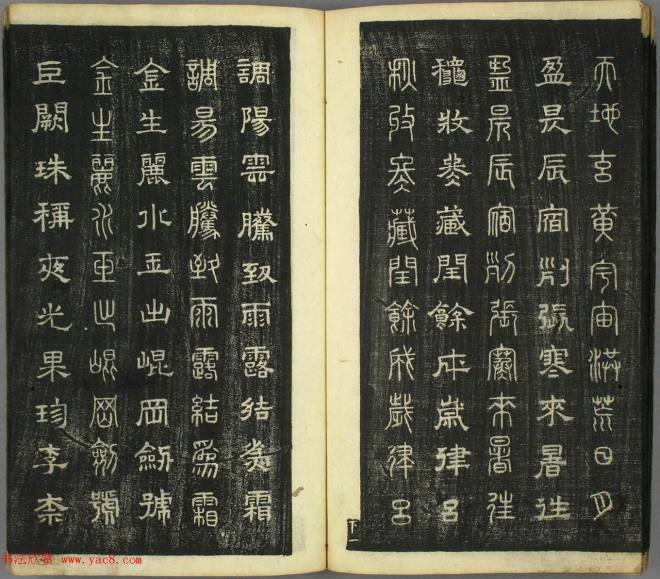 天地玄黃宇宙洪荒日月
盈昃辰宿列張寒來暑往
盈昃辰宿列張寒來暑往
秋收冬藏閏餘成歲律呂
秋收冬藏閏餘成歲律呂
下一
調陽雲騰致雨露結為霜
調陽雲騰致雨露結為霜
金生麗水玉出崐岡劍號
金生麗水玉出崐岡劍號
巨闕珠稱夜光果珍李柰
书法欣赏 www.yac8.com